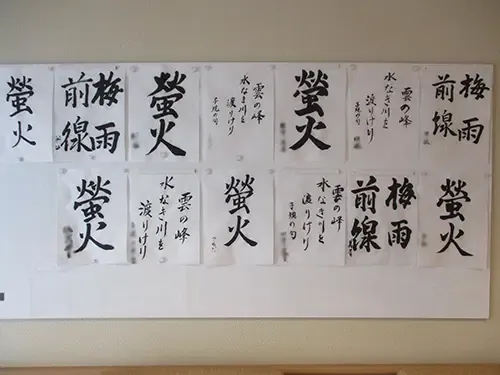 螢火
梅雨
前線
螢火
雲の峰
水なき川を
渡りけり
子規の句
螢火
雲の峰
水なき川を
渡りけり
子規の句
梅雨
前線
螢火
雲の峰
水なき川を
渡りけり
螢火
雲の峰
水なき川を
渡りけり
子規の句
梅雨
前線
螢火